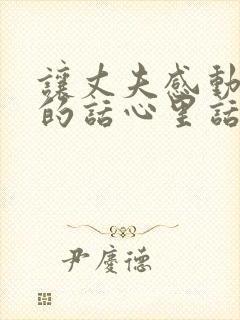 讓丈夫感動
的話心里話
尹慶德